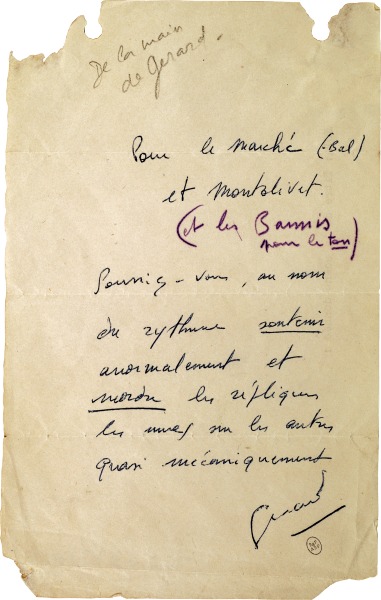 De la main
de Gérard.
Pour le marché (-Bal)
et Montalivet.
(et les Bannis
pour le ton)
Pouviez-vous, au nom
du rythme soutenir
anormalement et
mordre les répliques
les unes sur les autres
quasi mécaniquement
Gérard